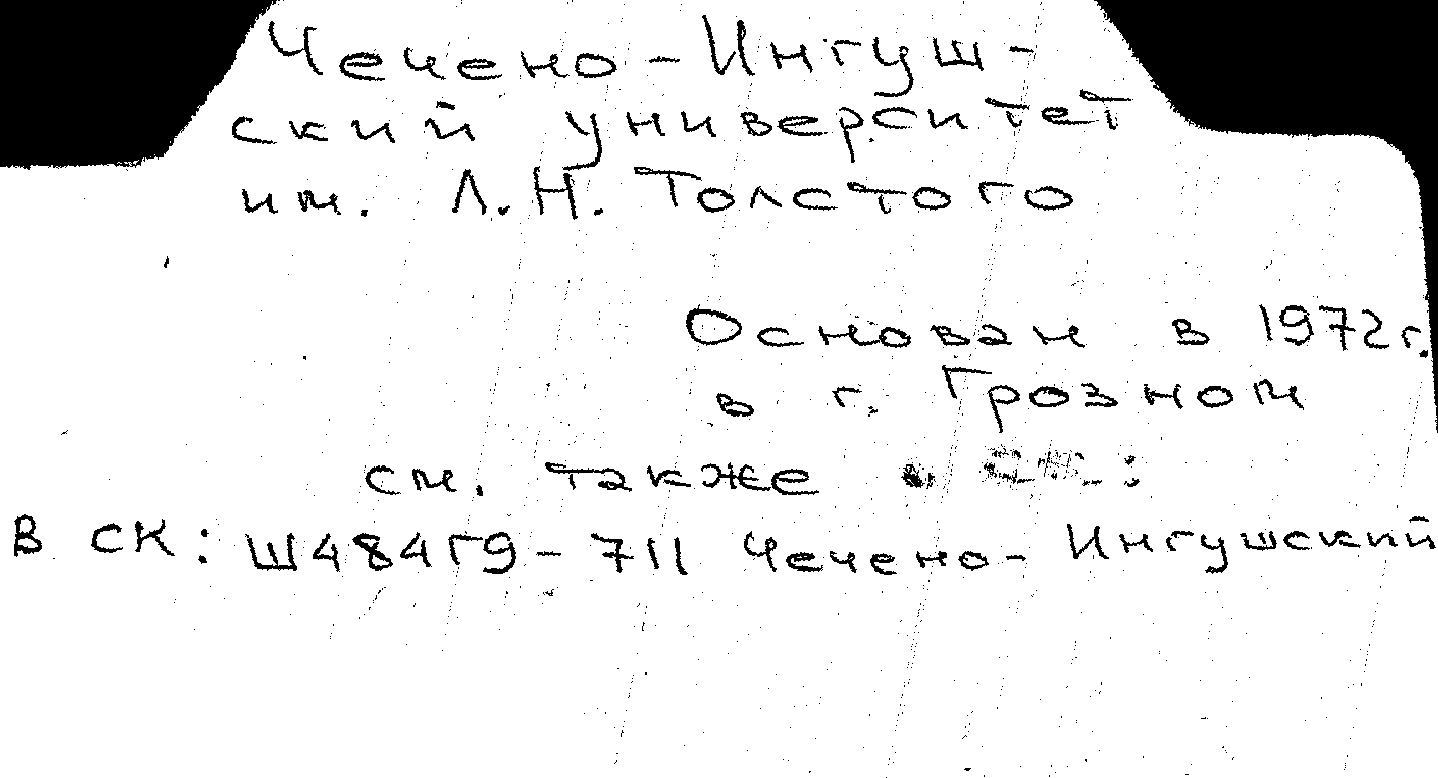 Чечено-Ингуш-
ский университет
им. Л.Н. Толстого
Основан в 1972г.
в г. Грозном
см. также
В СК: Ш484Г9-711 Чечено-Ингушский